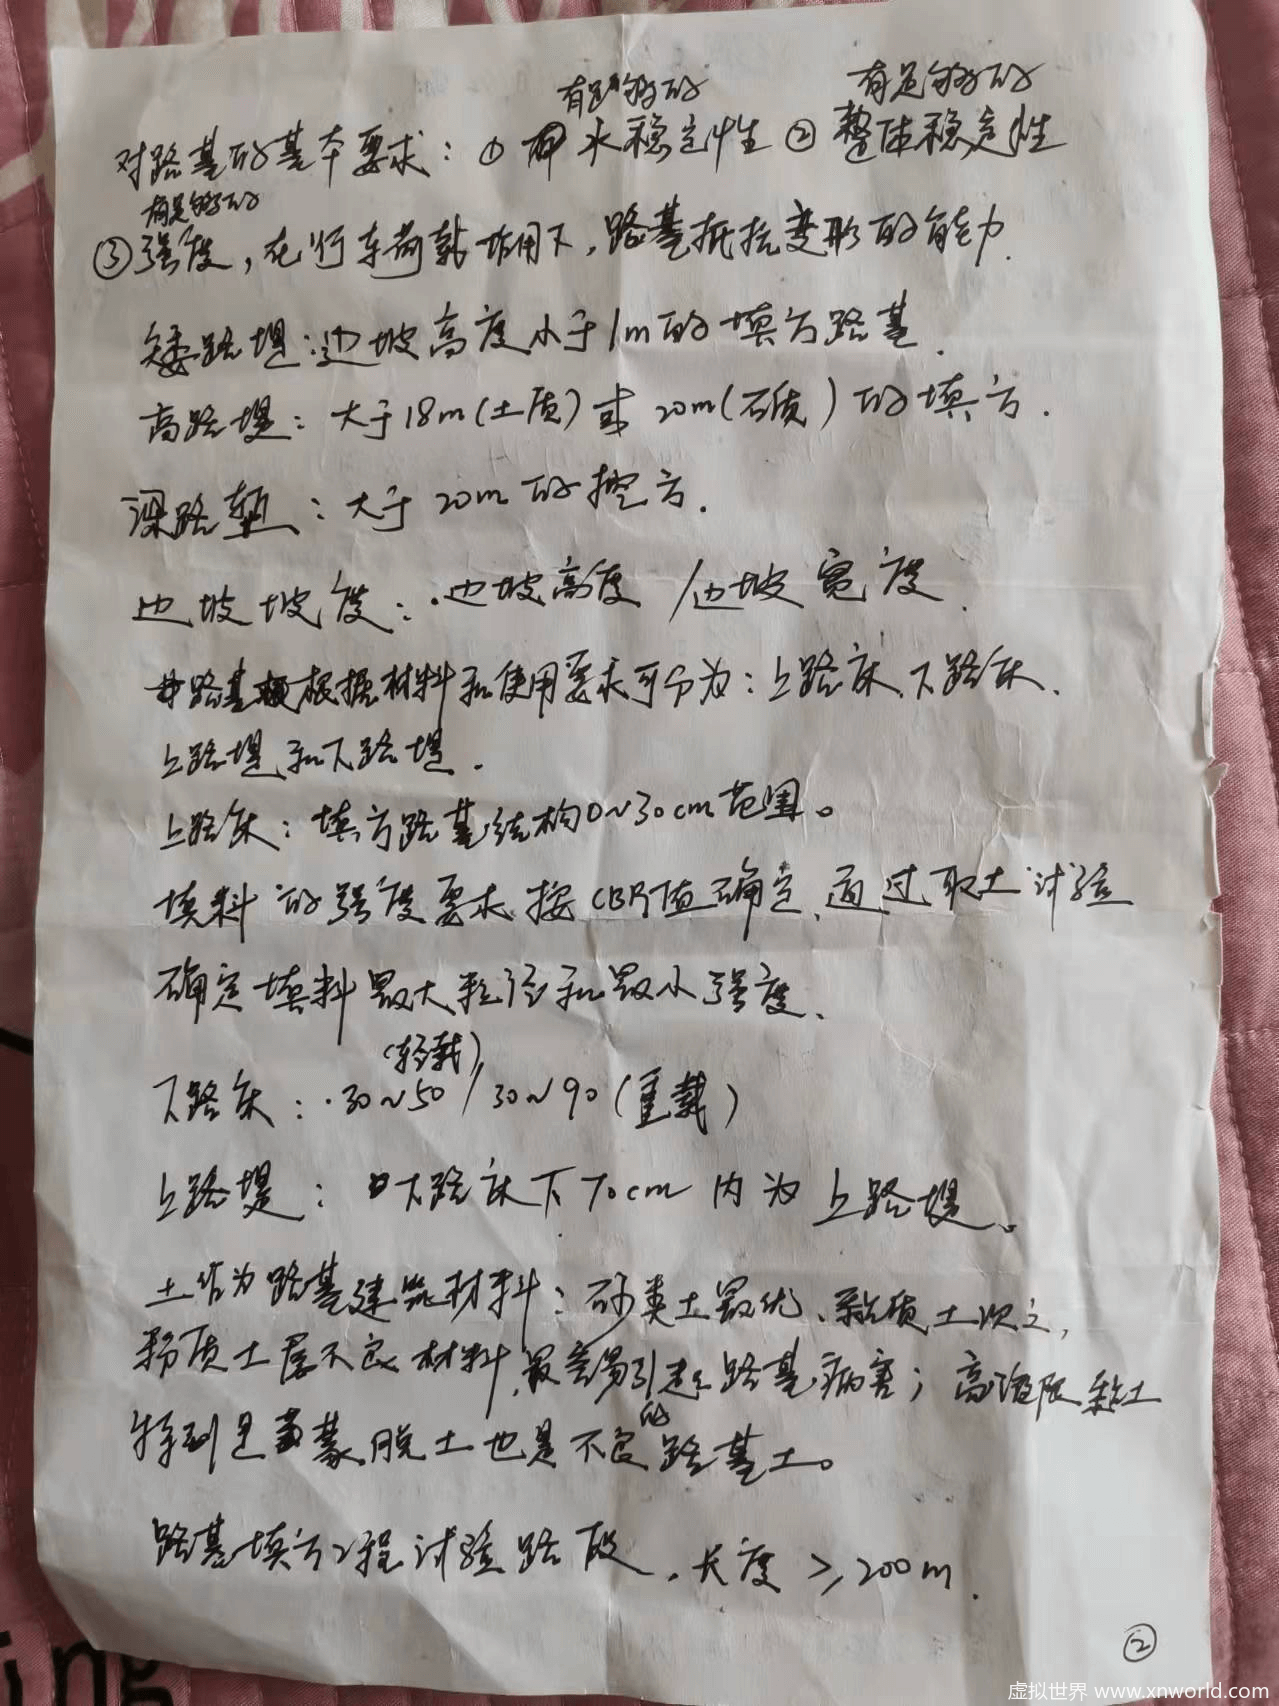 有足够的 有足够的
对路基的基本要求：① 水稳定性 ② 整体稳定性
有足够的
③强度，在行车荷载作用下，路基抵抗变形的能力.
矮路堤：边坡高度小于1m的填方路基.
高路堤：大于18m(土质)或20m(石质)的填方.
深路堑：大于20m的挖方.
边坡坡度：边坡高度/边坡宽度.
路基根据材料和使用要求可分为：上路床、下路床、
上路堤和下路堤.
上路床：填方路基结构0~30cm范围。
填料的强度要求按CBR值确定、通过取土试验
确定填料最大粒径和最小强度、
(轻载)
下路床：30~50/30~90(重载)
上路堤：下路床下70cm内为上路堤。
土作为路基建筑材料：砂类土最优、黏质土次之，
粉质土属不良材料，最容易引起路基病害；高液限黏土
的
特别是蒙脱土也是不良路基土。
路基填方工程试验路段，长度≥200m.
②
虚拟世界 www.xnworld.com